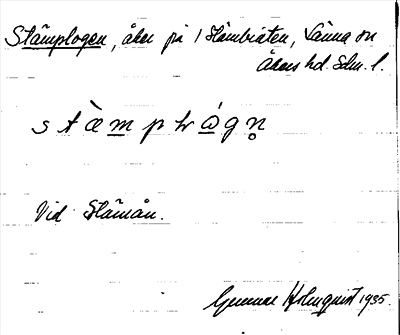 Stämplogen, åker på 1 Hambråten, Länna sn
Åkers hd. Sdm. l.
s t ä̀ m p l ò g n̥
Vid Stämån.
Gunnar Holmquist 1935.